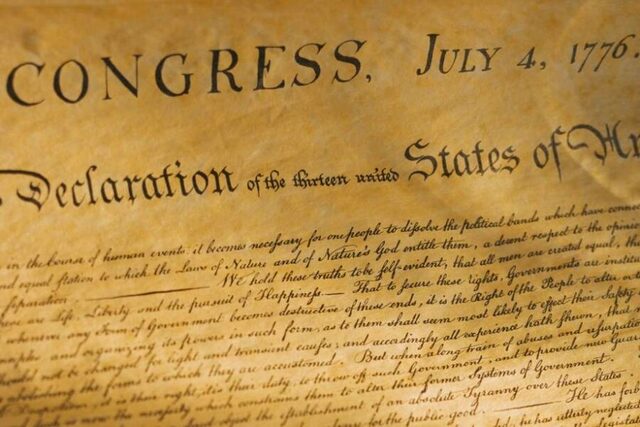 CONGRESS, JULY 4, 1776.
Declaration of the thirteen united States of
in the Course of human events, it becomes necessary for one people to dissolve the political bands which have connec
nd equal station to which the Laws of Nature and of Nature's God entitle them, a decent respect to the opinio
separation. — We hold these truths to be self-evident, that all men are created equal, th
are Life, Liberty and the pursuit of Happiness.— That to secure these rights, Governments are institu
whenever any Form of Government becomes destructive of these ends, it is the Right of the People to alter o
and organizing its powers in such form, as to them shall seem most likely to effect their Safety
should not be changed for light and transient causes; and accordingly all experience hath shewn, that
abolishing the forms to which they are accustomed. But when a long train of abuses and usurpatio
Despotism, it is their right, it is their duty, to throw off such Government, and to provide new Guar
is now the necessity which constrains them to alter their former Systems of Government.
object the establishment of an absolute Tyranny over these States.
for the public good. — He has forb
he has utterly neglected